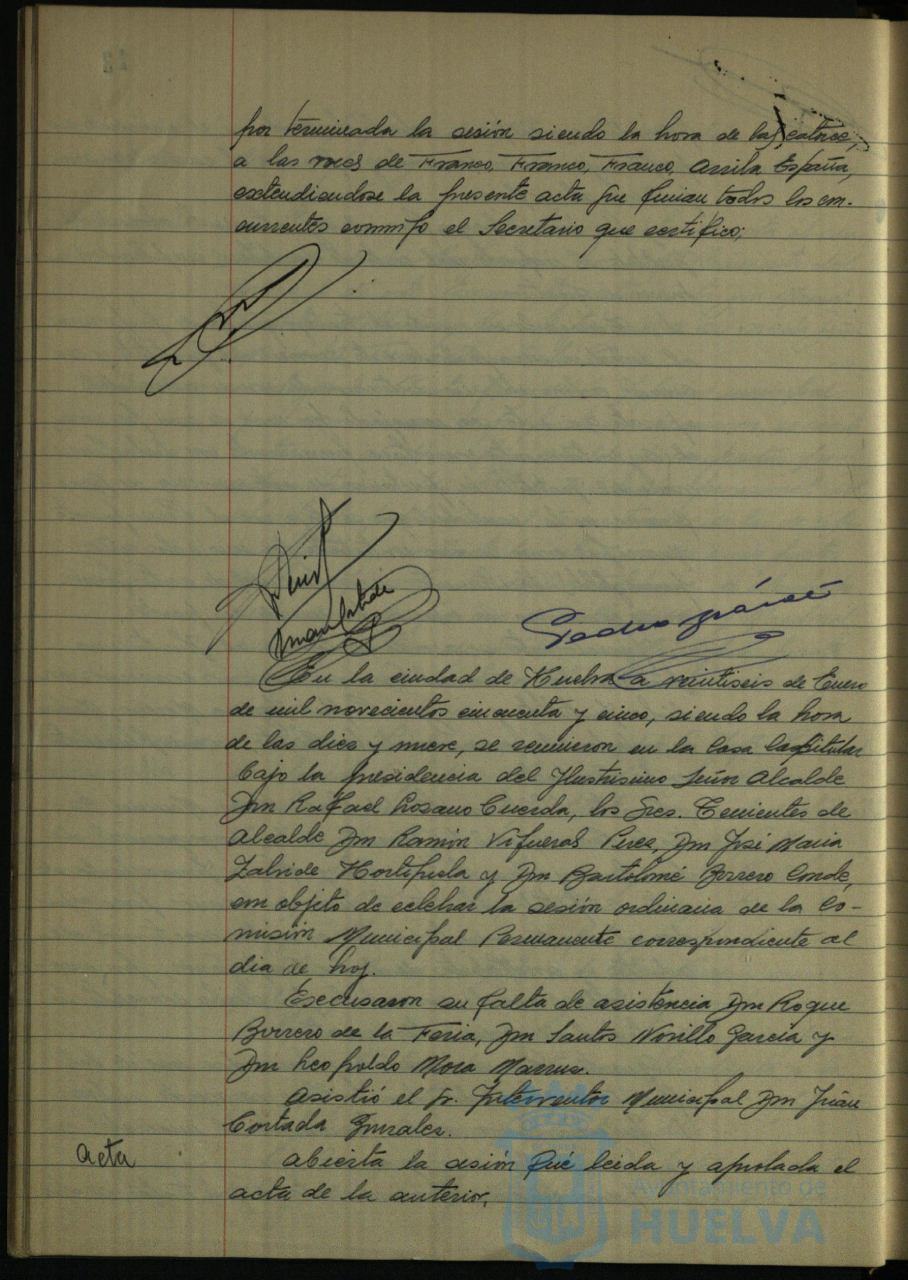 por terminada la sesión siendo la hora de las catorce,
a las voces de Franco, Franco, Franco, Arriba España,
extendiendose la presente acta que firman todos los con-
currentes conmigo el Secretario que certifico;
En la ciudad de Huelva a veintiseis de Enero
de mil novecientos cincuenta y cinco, siendo la hora
de las dies y nueve, se reunieron en la Casa Capitular
bajo la presidencia del Ilustrisimo Señor Alcalde
Don Rafael Lozano Cuerda, los Sres. Tenientes de
Alcalde Don Ramón Perez, Don José Maria
Zalvide y Don Bartolomé Borrero Conde,
con objeto de celebrar la sesión ordinaria de la Co-
misión Municipal Permanente correspondiente al
dia de hoy.
Excusaron su falta de asistencia Don Roque
Borrero de la Feria, Don Santos Novillo García y
Don Leopoldo Mora
Asistió el Sr. Interventor Municipal Don Juan
Cortada Gonzalez.
Acta
Abierta la sesión fué leida y aprobada el
acta de la anterior,
Ayuntamiento de
HUELVA